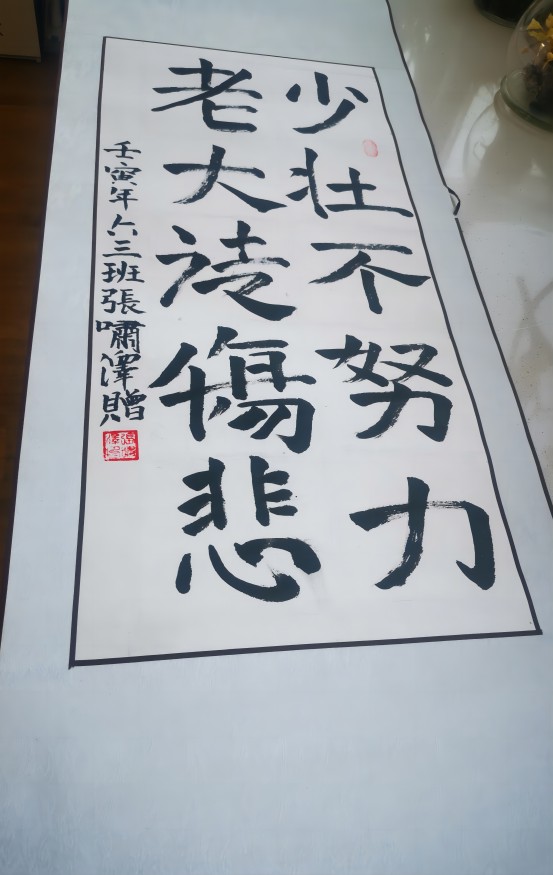 少壮不努力
老大徒傷悲
壬寅年六三班張嘯澤贈